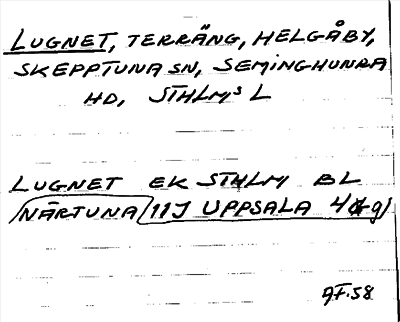 LUGNET, TERRÄNG, HELGÅBY,
SKEPPTUNA SN, SEMINGHUNDRA
HD, STHLMS L
LUGNET EK STHLM BL
NÄRTUNA 11J UPPSALA 4 g